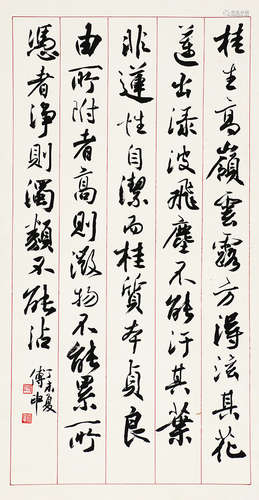 桂生高嶺雲露方得泫其花
蓮出淥波飛塵不能汙其葉
非蓮性自潔而桂質本貞良
由所附者高則微物不能累所
憑者淨則濁類不能沾
丁未夏
傅申